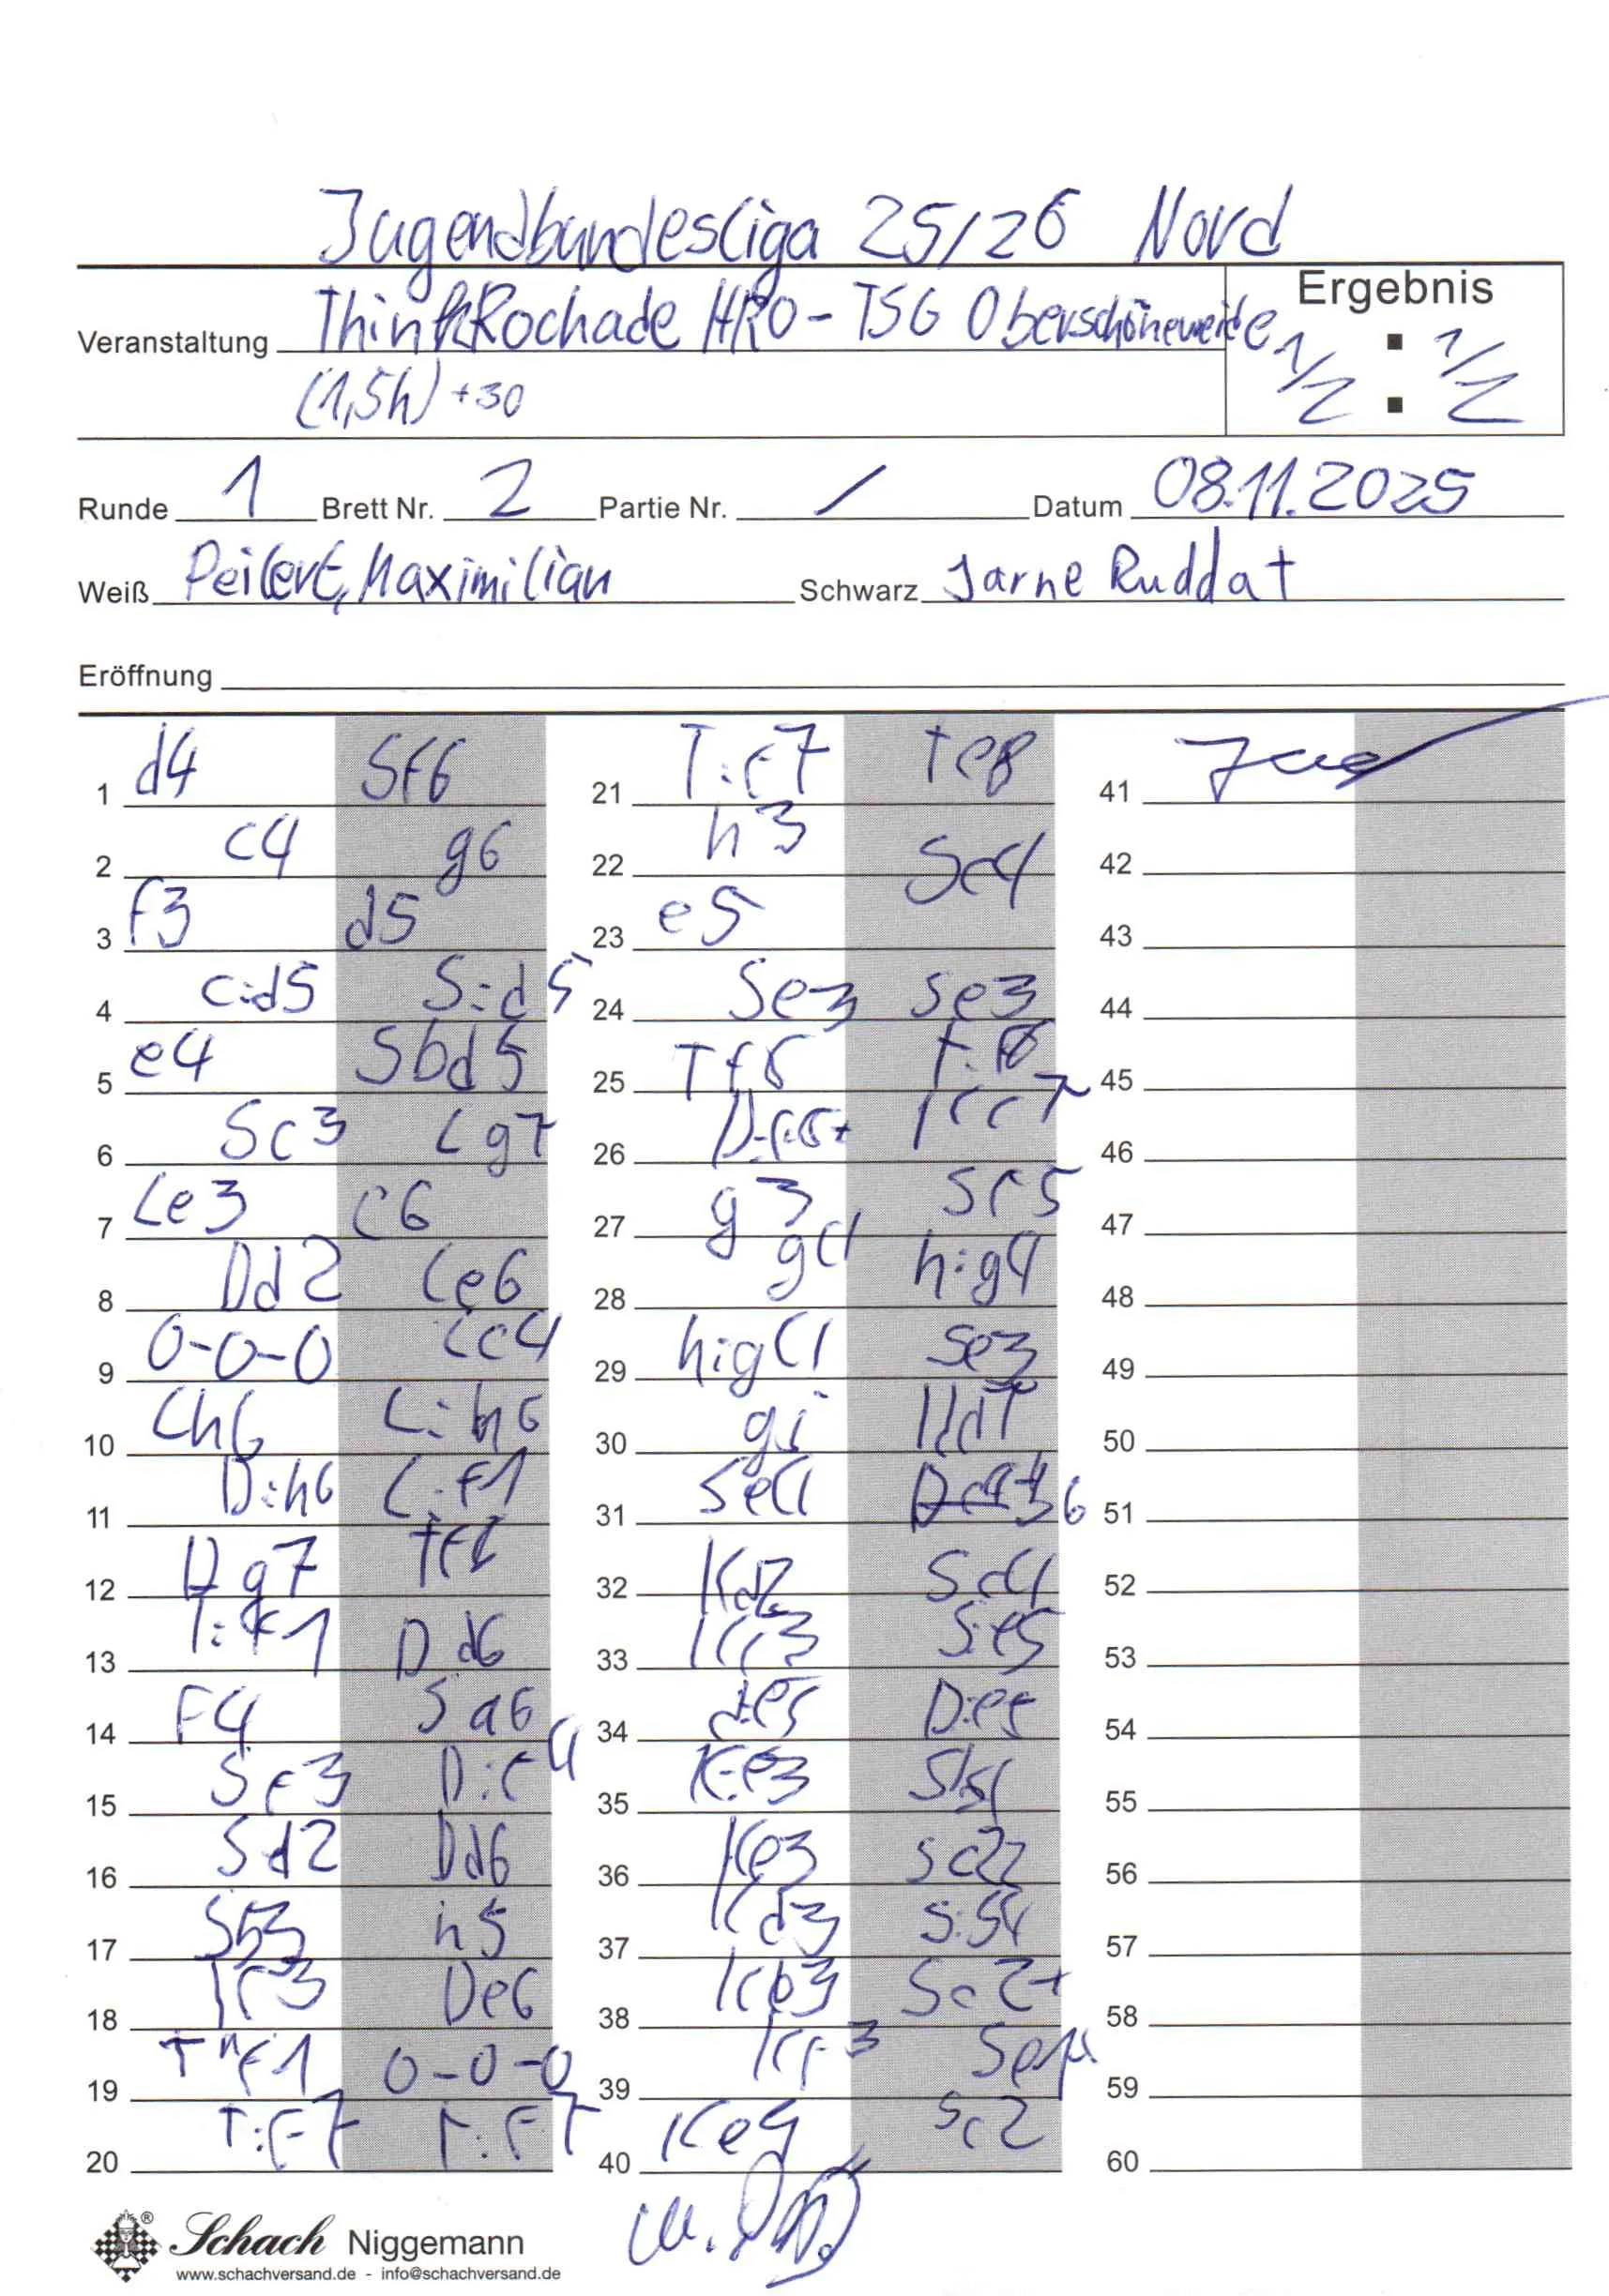 Jugendbundesliga 25/26 Nord
Veranstaltung ThinkRochade HRO - TSG Oberschöneweide
Ergebnis
1/2 : 1/2
(1,5h) +30
Runde 1 Brett Nr. 2 Partie Nr. / Datum 08.11.2025
Weiß Peilert, Maximilian Schwarz Jarne Ruddat
Eröffnung
1 d4 Sf6
2 c4 g6
3 f3 d5
4 c:d5 S:d5
5 e4 Sbd5
6 Sc3 Lg7
7 Le3 c6
8 Dd2 Le6
9 0-0-0 Lc4
10 Lh6 L:h6
11 D:h6 L:f1
12 Dg7 Tf8
13 T:f1 Dd6
14 F4 Sa6
15 Sf3 D:f4
16 Sd2 Dd6
17 Sb3 h5
18 Tf3 De6
19 Thf1 0-0-0
20 T:F7 T:F7
21 T:f7 Te8
22 h3 Sc4
23 e5
24 Se3 Se3
25 Tf8 T:f8
26 D:f8+ Kc7
27 g3 Sf5
28 g4 h:g4
29 h:g4 Se3
30 g5 Dd7
31 Se4
32 Kd2 Sc4
33 Kc3 S:e5
34 d:e5 D:e5
35
36 Ke3 Sc2
37 Kd3 S:b4
38 Kb3 Sc2+
39
40 Ke4 Sc2
41
42
43
44
45
46
47
48
49
50
51
52
53
54
55
56
57
58
59
60
Schach Niggemann
www.schachversand.de - info@schachversand.de